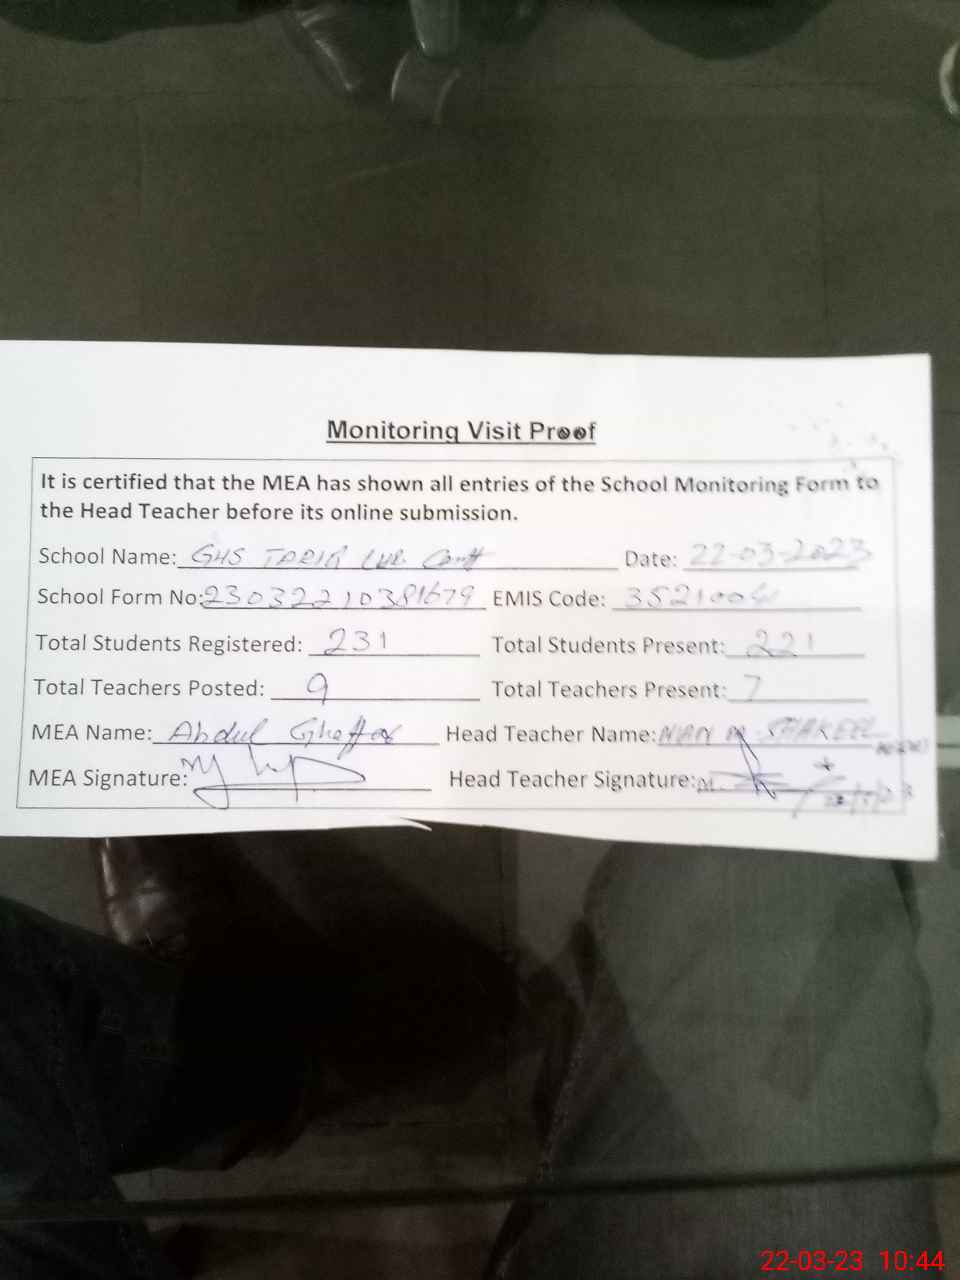 Monitoring Visit Proof
It is certified that the MEA has shown all entries of the School Monitoring Form to
the Head Teacher before its online submission.
School Name: GHS TARIQ LHR. Cantt Date: 22-03-2023
School Form No: 230322210381679 EMIS Code: 3521004
Total Students Registered: 231 Total Students Present: 221
Total Teachers Posted: 9 Total Teachers Present: 7
MEA Name: Abdul Ghaffar Head Teacher Name: M. SHAKEEL
MEA Signature: Head Teacher Signature:
22-03-23 10:44